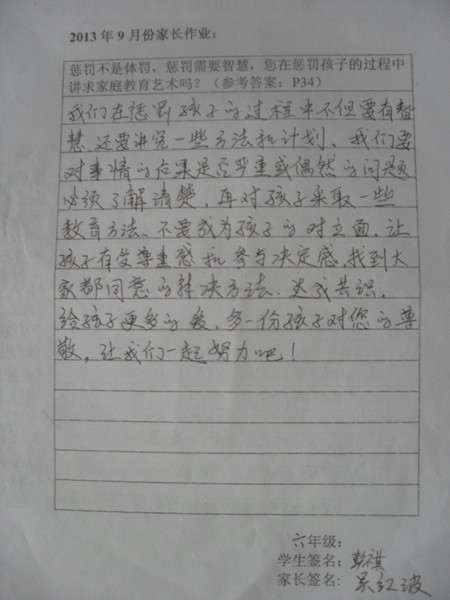 2013年9月份家长作业：
惩罚不是体罚，惩罚需要智慧，您在惩罚孩子的过程中
讲求家庭教育艺术吗？（参考答案：P34）
我们在惩罚孩子的过程中不但要有智
慧，还要讲究一些方法和计划，我们要
对事情的后果是否严重或偶然的问题
必须了解清楚，再对孩子采取一些
教育方法。不要成为孩子的对立面，让
孩子有受尊重感和参与决定感，找到大
家都同意的解决方法，达成共识，
给孩子更多的爱，多一份孩子对您的尊
敬，让我们一起努力吧！
六年级：
学生签名：彭祺
家长签名：吴红波